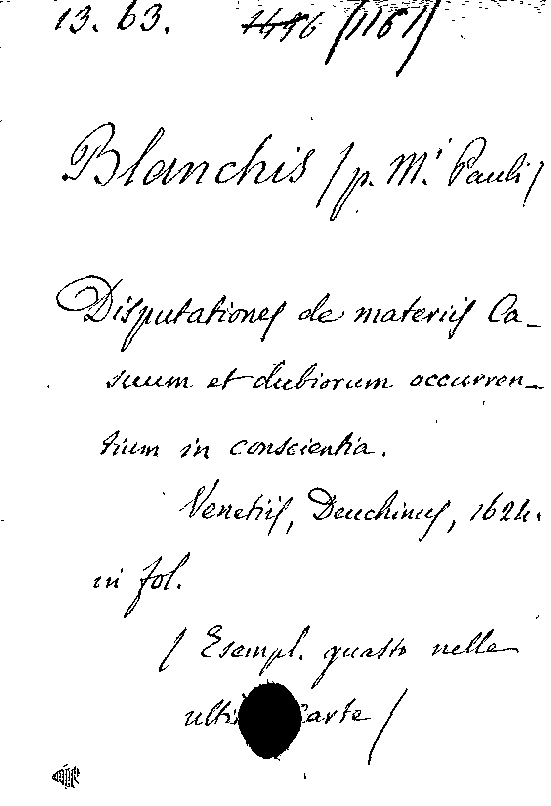 13. 63. 1496 (1161)
Blanchis (p. M.i Pauli)
Disputationes de materiis Ca-
suum et dubiorum occurren-
tium in conscientia.
Venetiis, Deuchinus, 1624.
in fol.
(Esempl. guasto nelle
carte)